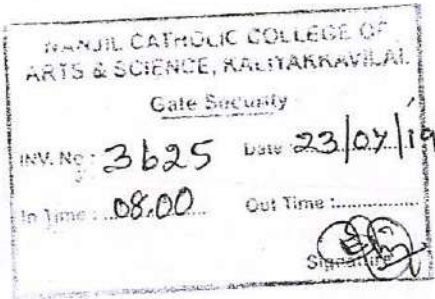 NANJIL CATHOLIC COLLEGE OF
ARTS & SCIENCE, KALIYAKKAVILAI.
Gate Security
INV. No : 3625 Date : 23/07/19
In Time : 08.00 Out Time :
Signature